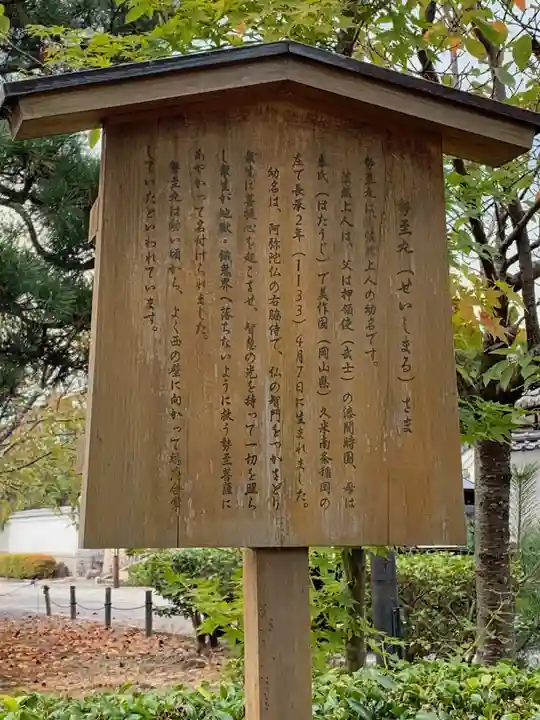 勢至丸(せいしまる)さま
勢至丸は、法然上人の幼名です。
法然上人は、父は押領使(武士)の漆間時国、母は
秦氏(はたうじ)で美作国(岡山県)久米南条稲岡の
庄で長承2年(1133)4月7日に生まれました。
幼名は、阿弥陀仏の右脇侍で、仏の智門をつかさどり
衆生に菩提心を起こさせ、智慧の光を持って一切を照ら
し衆生が地獄・餓鬼界へ落ちないように救う勢至菩薩に
あやかって名付けられました。
勢至丸は幼い頃から、よく西の壁に向かって
していたといわれています。